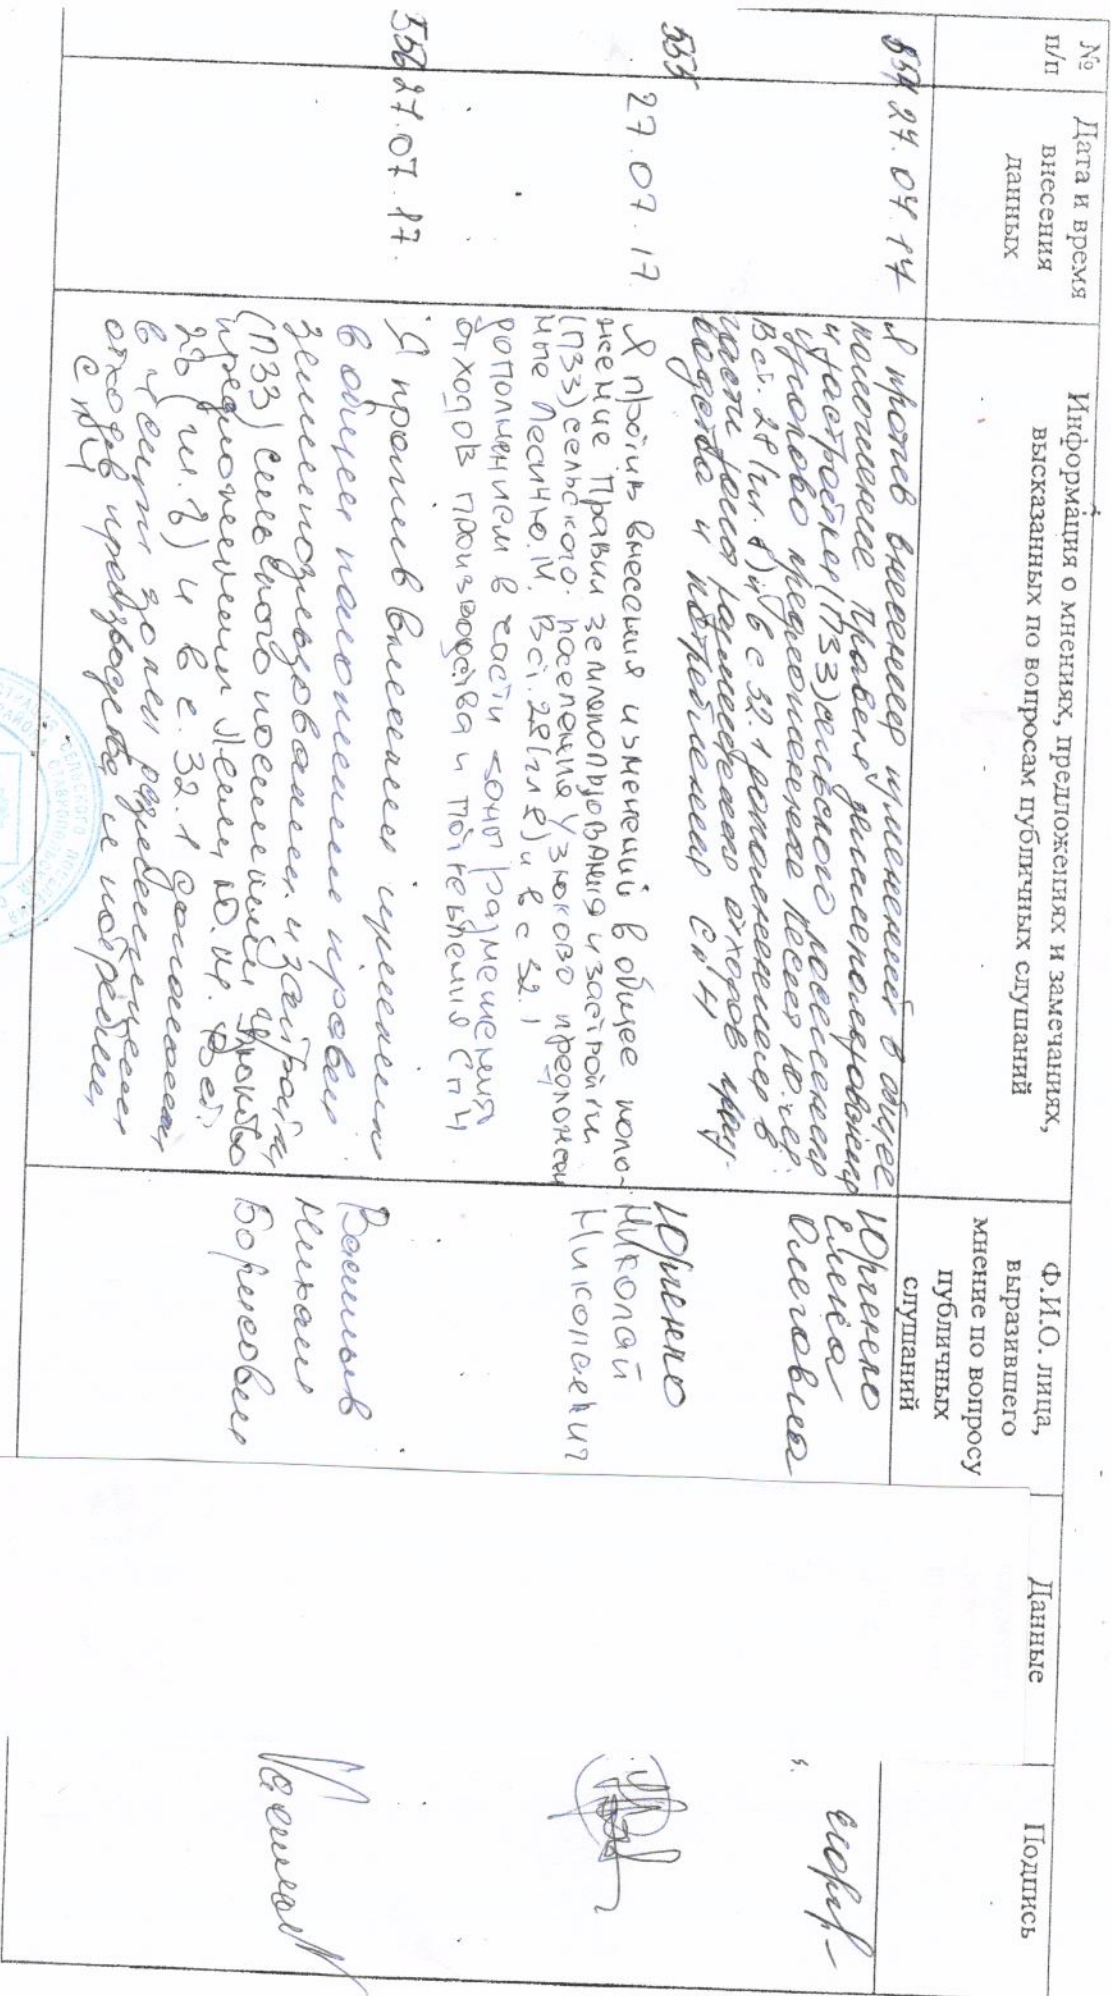 №
п/п
Дата и время
внесения
данных
Информация о мнениях, предложениях и замечаниях,
высказанных по вопросам публичных слушаний
Ф.И.О. лица,
выразившего
мнение по вопросу
публичных
слушаний
Данные
Подпись
27.07.17
Я против внесения изменений в общее
положение Правил землепользования
и застройки (ПЗЗ) сельского поселения
Узюково предложенные
В ст. 28 (гл. 8) и в с 32.1 дополнением в
части зоны размещения отходов
и потребления СП4
Юрченко
Елена
Олеговна
555
27.07.17
Я против внесения изменений в общее поло-
жение Правил землепользования и застройки
(ПЗЗ) сельского поселения Узюково предложен
ные Лесину Ю.М. В ст. 28 (гл 8) и в с 32.1
дополнением в части зоны размещения
отходов производства и потребления СП4
Юрченко
Николай
Николаевич
556
27.07.17.
Я против внесения изменении
в общее положение правил
землепользования и застройки
(ПЗЗ) сельского поселения Узюково
предложенных
28 (гл. 8) и в с. 32.1
в части зоны размещения
отходов производства и потребления
СП4
Васильев
Михаил
Борисович
СЕЛЬСКОГО ПОСЕЛЕНИЯ
РАЙОНА СТАВРОПОЛЬСКИЙ